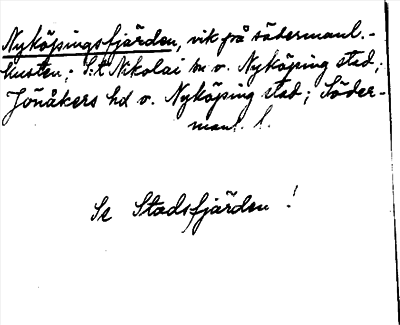 Nyköpingsfjärden, vik på södermanl.-
kusten; S:t Nikolai sn o. Nyköping stad;
Jönåkers hd o. Nyköping stad; Söder-
manl. l.
Se Stadsfjärden!